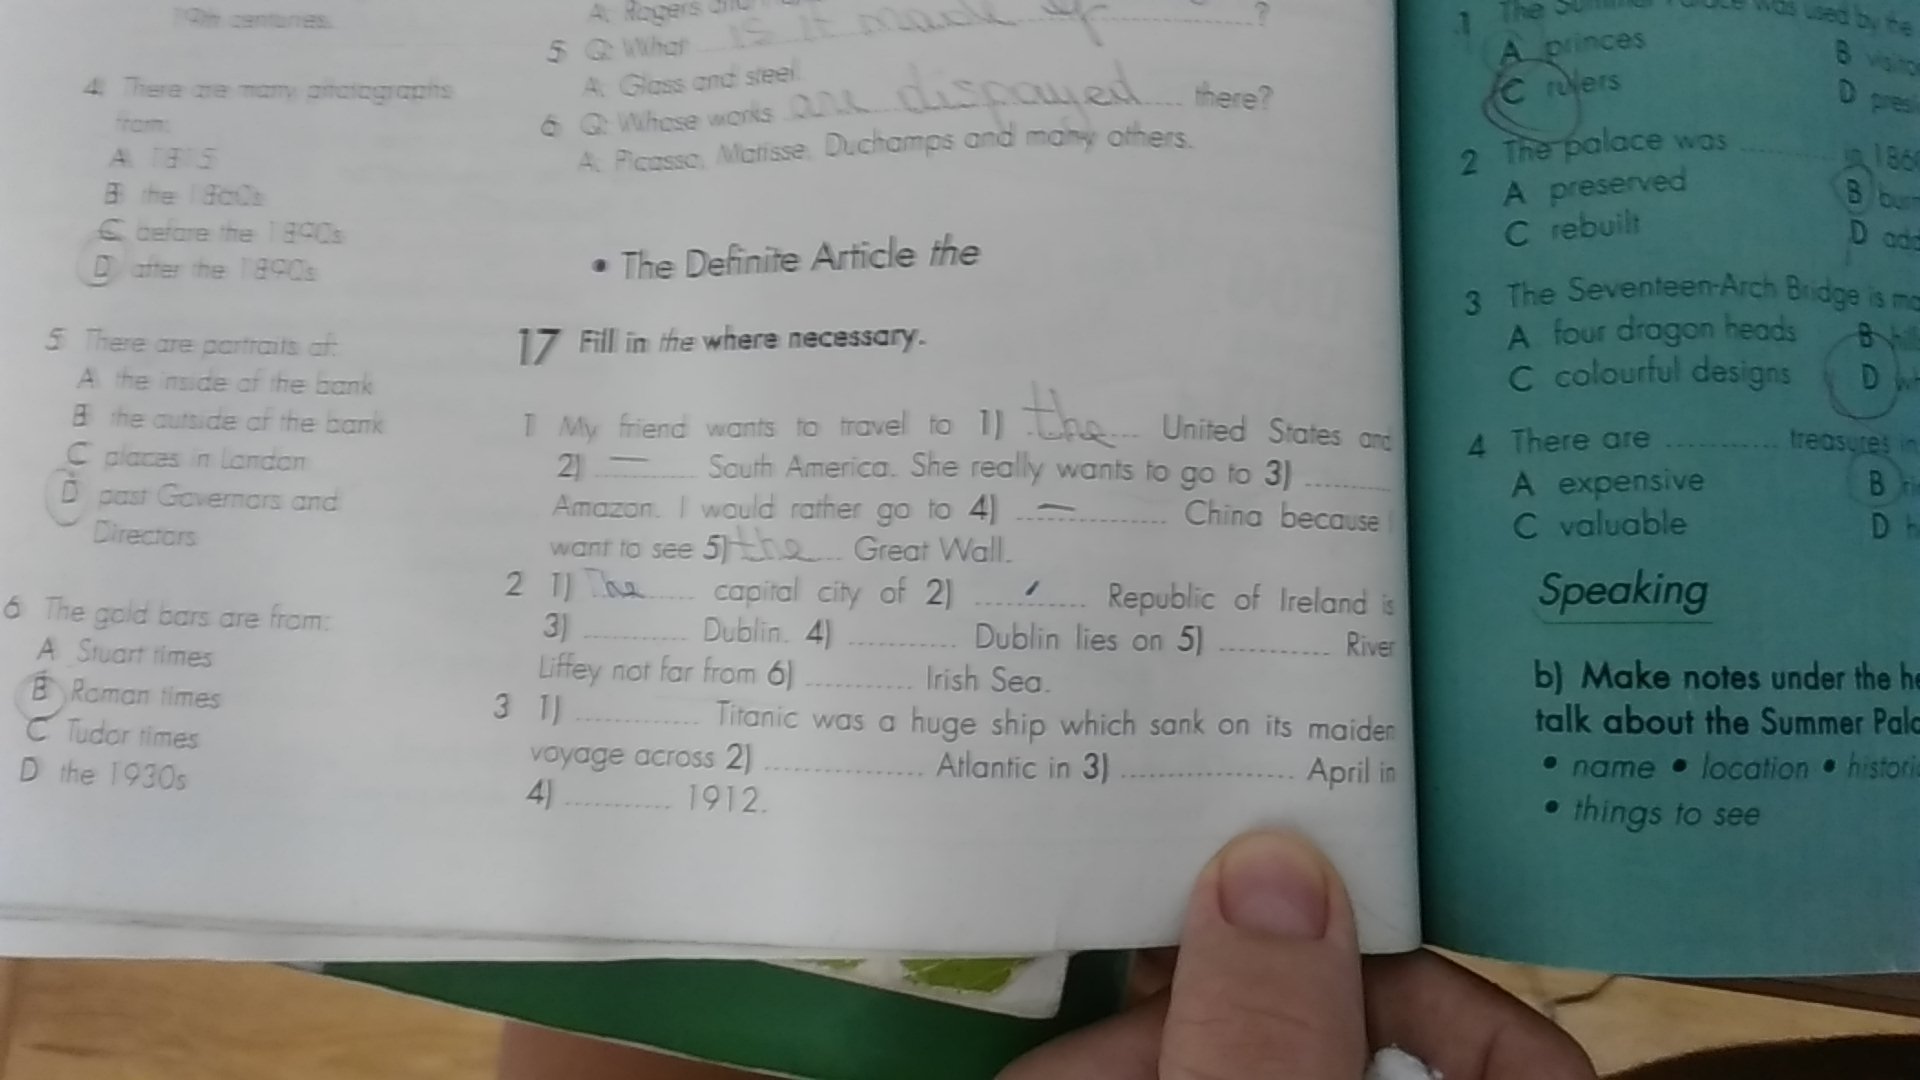 19th centuries.
4 There are many photographs
from:
A 1815
B the 1860s
C before the 1890s
D after the 1890s
5 There are portraits of:
A the inside of the bank
B the outside of the bank
C places in London
D past Governors and
Directors
6 The gold bars are from:
A Stuart times
B Roman times
C Tudor times
D the 1930s
A: Rogers
5 Q: What is it made of ?
A: Glass and steel.
6 Q: Whose works are dispayed there?
A: Picasso, Matisse, Duchamps and many others.
• The Definite Article the
17 Fill in the where necessary.
1 My friend wants to travel to 1) the United States and
2) — South America. She really wants to go to 3) ..........
Amazon. I would rather go to 4) — China because I
want to see 5) the Great Wall.
2 1) The capital city of 2) .......... Republic of Ireland is
3) .......... Dublin. 4) .......... Dublin lies on 5) .......... River
Liffey not far from 6) .......... Irish Sea.
3 1) .......... Titanic was a huge ship which sank on its maiden
voyage across 2) .......... Atlantic in 3) .......... April in
4) .......... 1912.
1 The Summer Palace was used by the
A princes B
C rulers D
2 The palace was .......... in
A preserved B
C rebuilt D
3 The Seventeen-Arch Bridge is
A four dragon heads B
C colourful designs D
4 There are .......... treasures in
A expensive B
C valuable D
Speaking
b) Make notes under the
talk about the Summer
• name • location •
• things to see